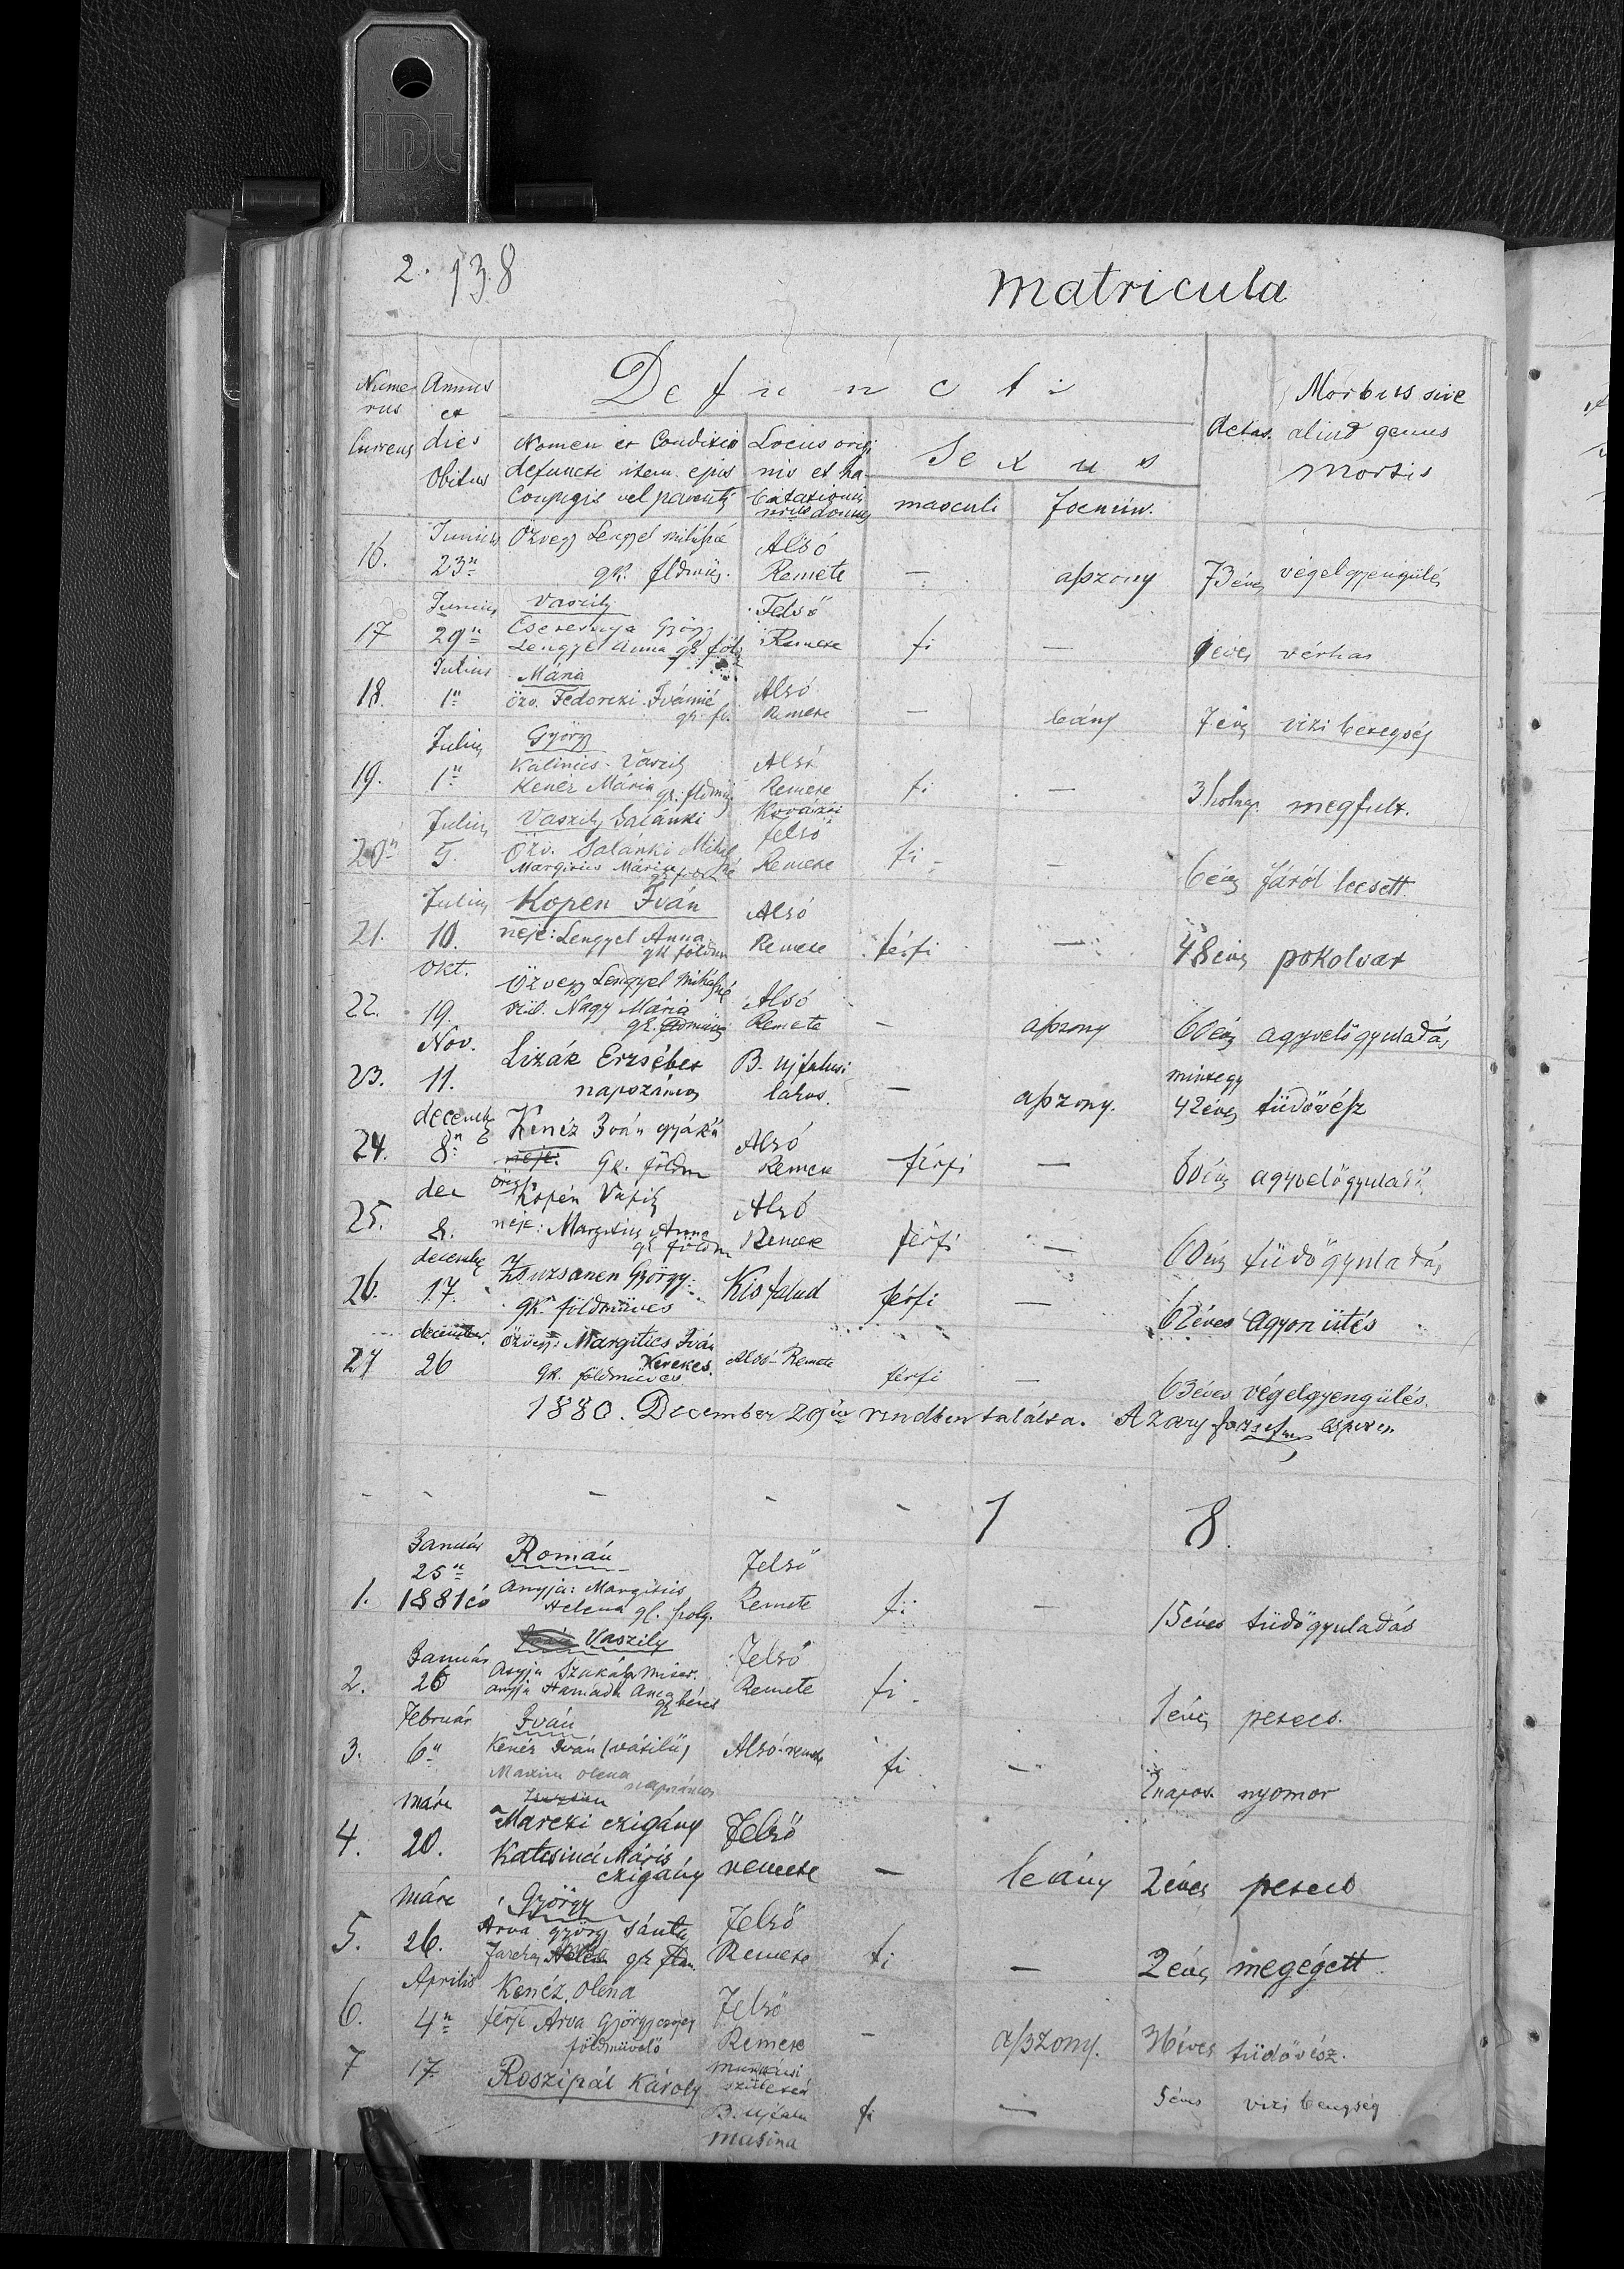 IDL
2. 138
matricula
Numerus Currens
Annus et dies Obitus
Defuncti
Nomen et Conditio defuncti item ejus Conjugis vel parentis
Locus originis et habitationis nrus domus
Sexus
masculi
foemin.
Aetas.
Morbus sive aliud genus mortis
16. Junius 23n Özvegy Lengyel Mihályné gk. fldmüv. Alsó Remete — aszony 73 éves végelgyengülés
17 Junius 29n Vaszily
Cserevnya György
Lengyel Anna gk föl Felső Remete fi — 1 éves vérhas
18. Julius 1n Mária
özv. Fedorczi Ivánné gk. fl. Alsó Remete — leány 7 éves vizi betegség
19. Julius 1n György
Kalinics Vaszily
Kenéz Mária gk. fldmüv Alsó Remete fi — 3 holnap. megfult.
20n Julius 5. Vaszily Salánki
Özv. Salánki Mihályné
Margitics Mária Felső Remete fi — 6 éves fáról leesett.
21. Julius 10. Kopen Iván
neje: Lengyel Anna gk földm Alsó Remete férfi — 48 éves pokolvar
22. Okt. 19. Özvegy Lengyel Mihályné
szül. Nagy Mária gk. fldmüves Alsó Remete — aszony 60 éves agyvelőgyuladás
23. Nov. 11. Lizák Erzsébet
napszámos B. Ujfalusi lakos. — aszony. mintegy 42 éves tüdővész
24. decemb 8n Kenéz Iván
neje. gk. földm Alsó Remete férfi — 60 éves agyvelőgyuladás
25. dec 8. öregb Kopén Vászily
neje: Margitics Anna gk földm Alsó Remete férfi — 60 éves tüdőgyuladás
26. december 17. Zsuzsanen György
gk. földmüves Kisfalud férfi — 62 éves agyon ütés
27 december. 26 Özvegy Margitics Iván
Kerekes. gk. földmüves Alsó-Remete férfi — 63 éves végelgyengülés.
1880. December 29én rendben találta. Azary József esperes
1 8
1. Január 25n 1881 Román
Anyja: Margitics Helena Felső Remete fi — 15 éves tüdőgyuladás
2. Január 26 Vaszily
Anyja Hamada Anna Felső Remete fi. 1 éves pesecs.
3. Február 6n Iván
Kenéz Iván (vászilü)
Maxim olena napszámos Alsó-remete fi — 2 napos. nyomor
4. márc 20. Marczi czigány
Katcsina Máris czigány Felső remete — leány 2 éves pesecs
5. márc 26. György
Arva györg Sánta Felső Remete fi — 2 éves megégett
6. Aprilis 4n Kenéz Olena
férje Arva György
földmüvelő Felső Remete — aszony. 36 éves tüdővész.
7 17 Roszipál Károly
munkácsi születésü
B. Ujfalu
masina fi — 5 éves vizi betegség